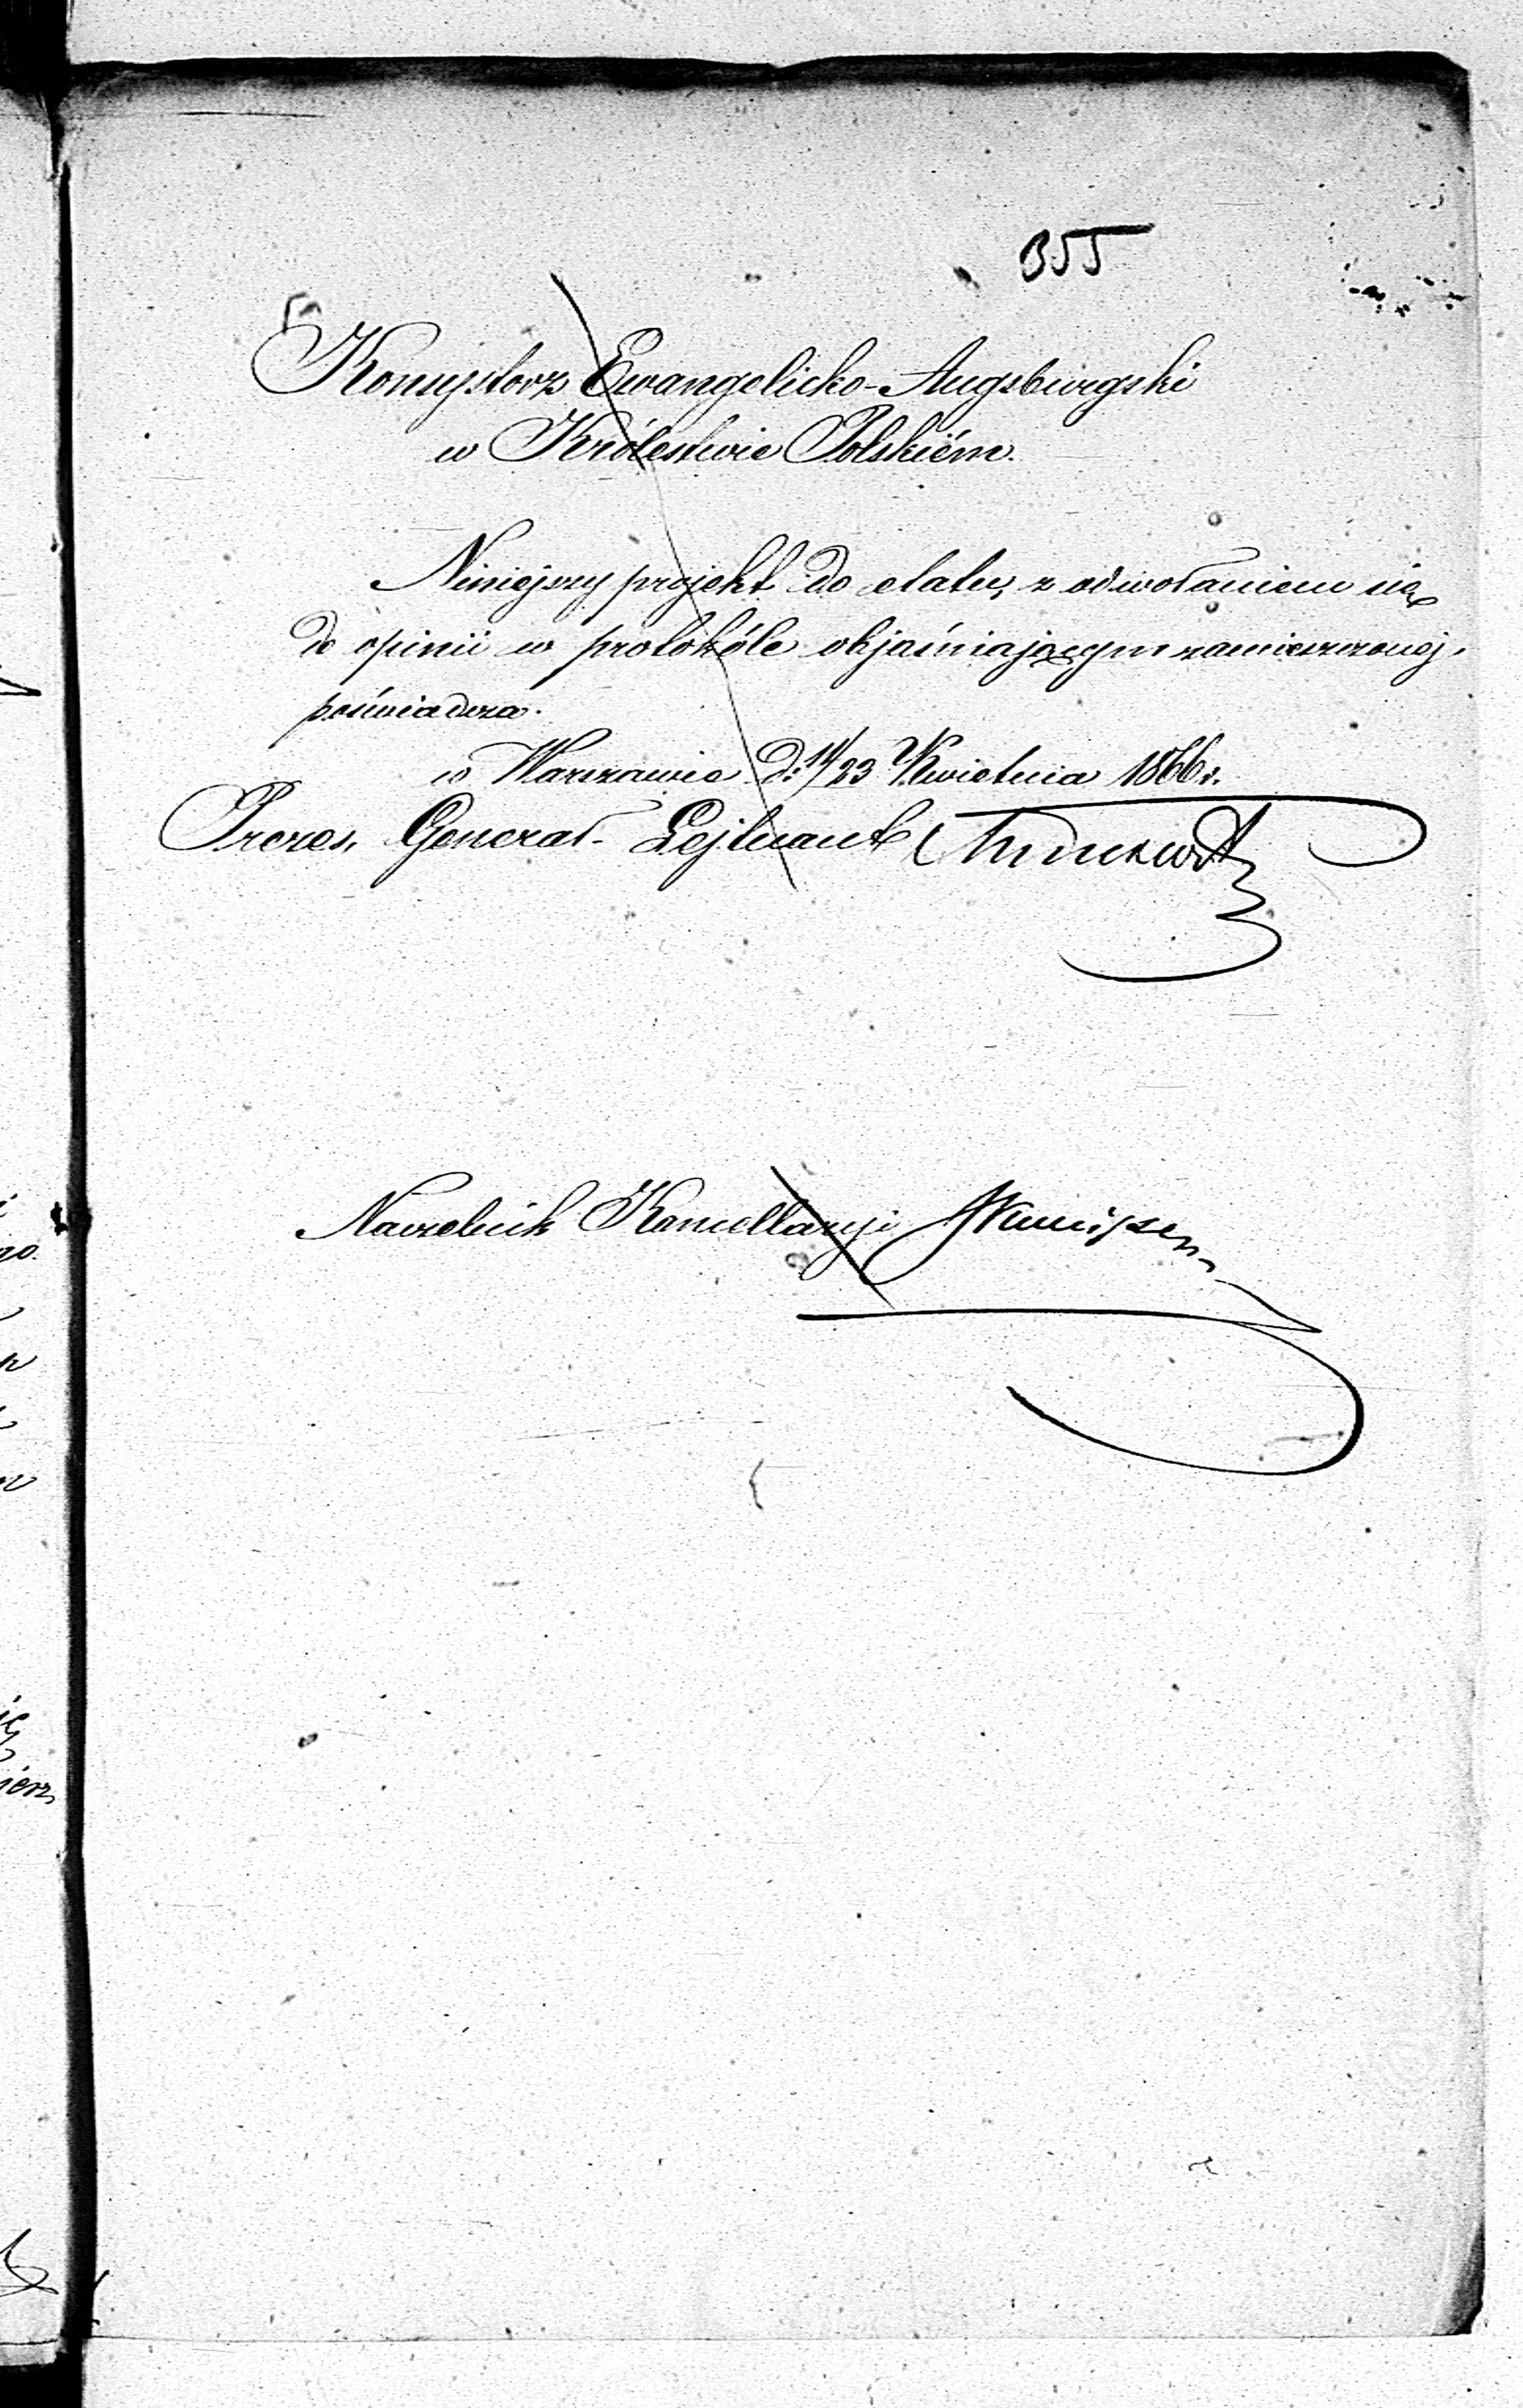 355
Konsystorz Ewangelicko-Augsburgski
w Królestwie Polskiém.
Niniejszy projekt do etatu, z odwołaniem się
do opinii w protokóle objaśniającym zamieszczonej,
poświadcza.
w Warszawie d: 11/23 Kwietnia 1866 r.
Prezes, Generał-Lejtnant
Naczelnik Kancellaryi